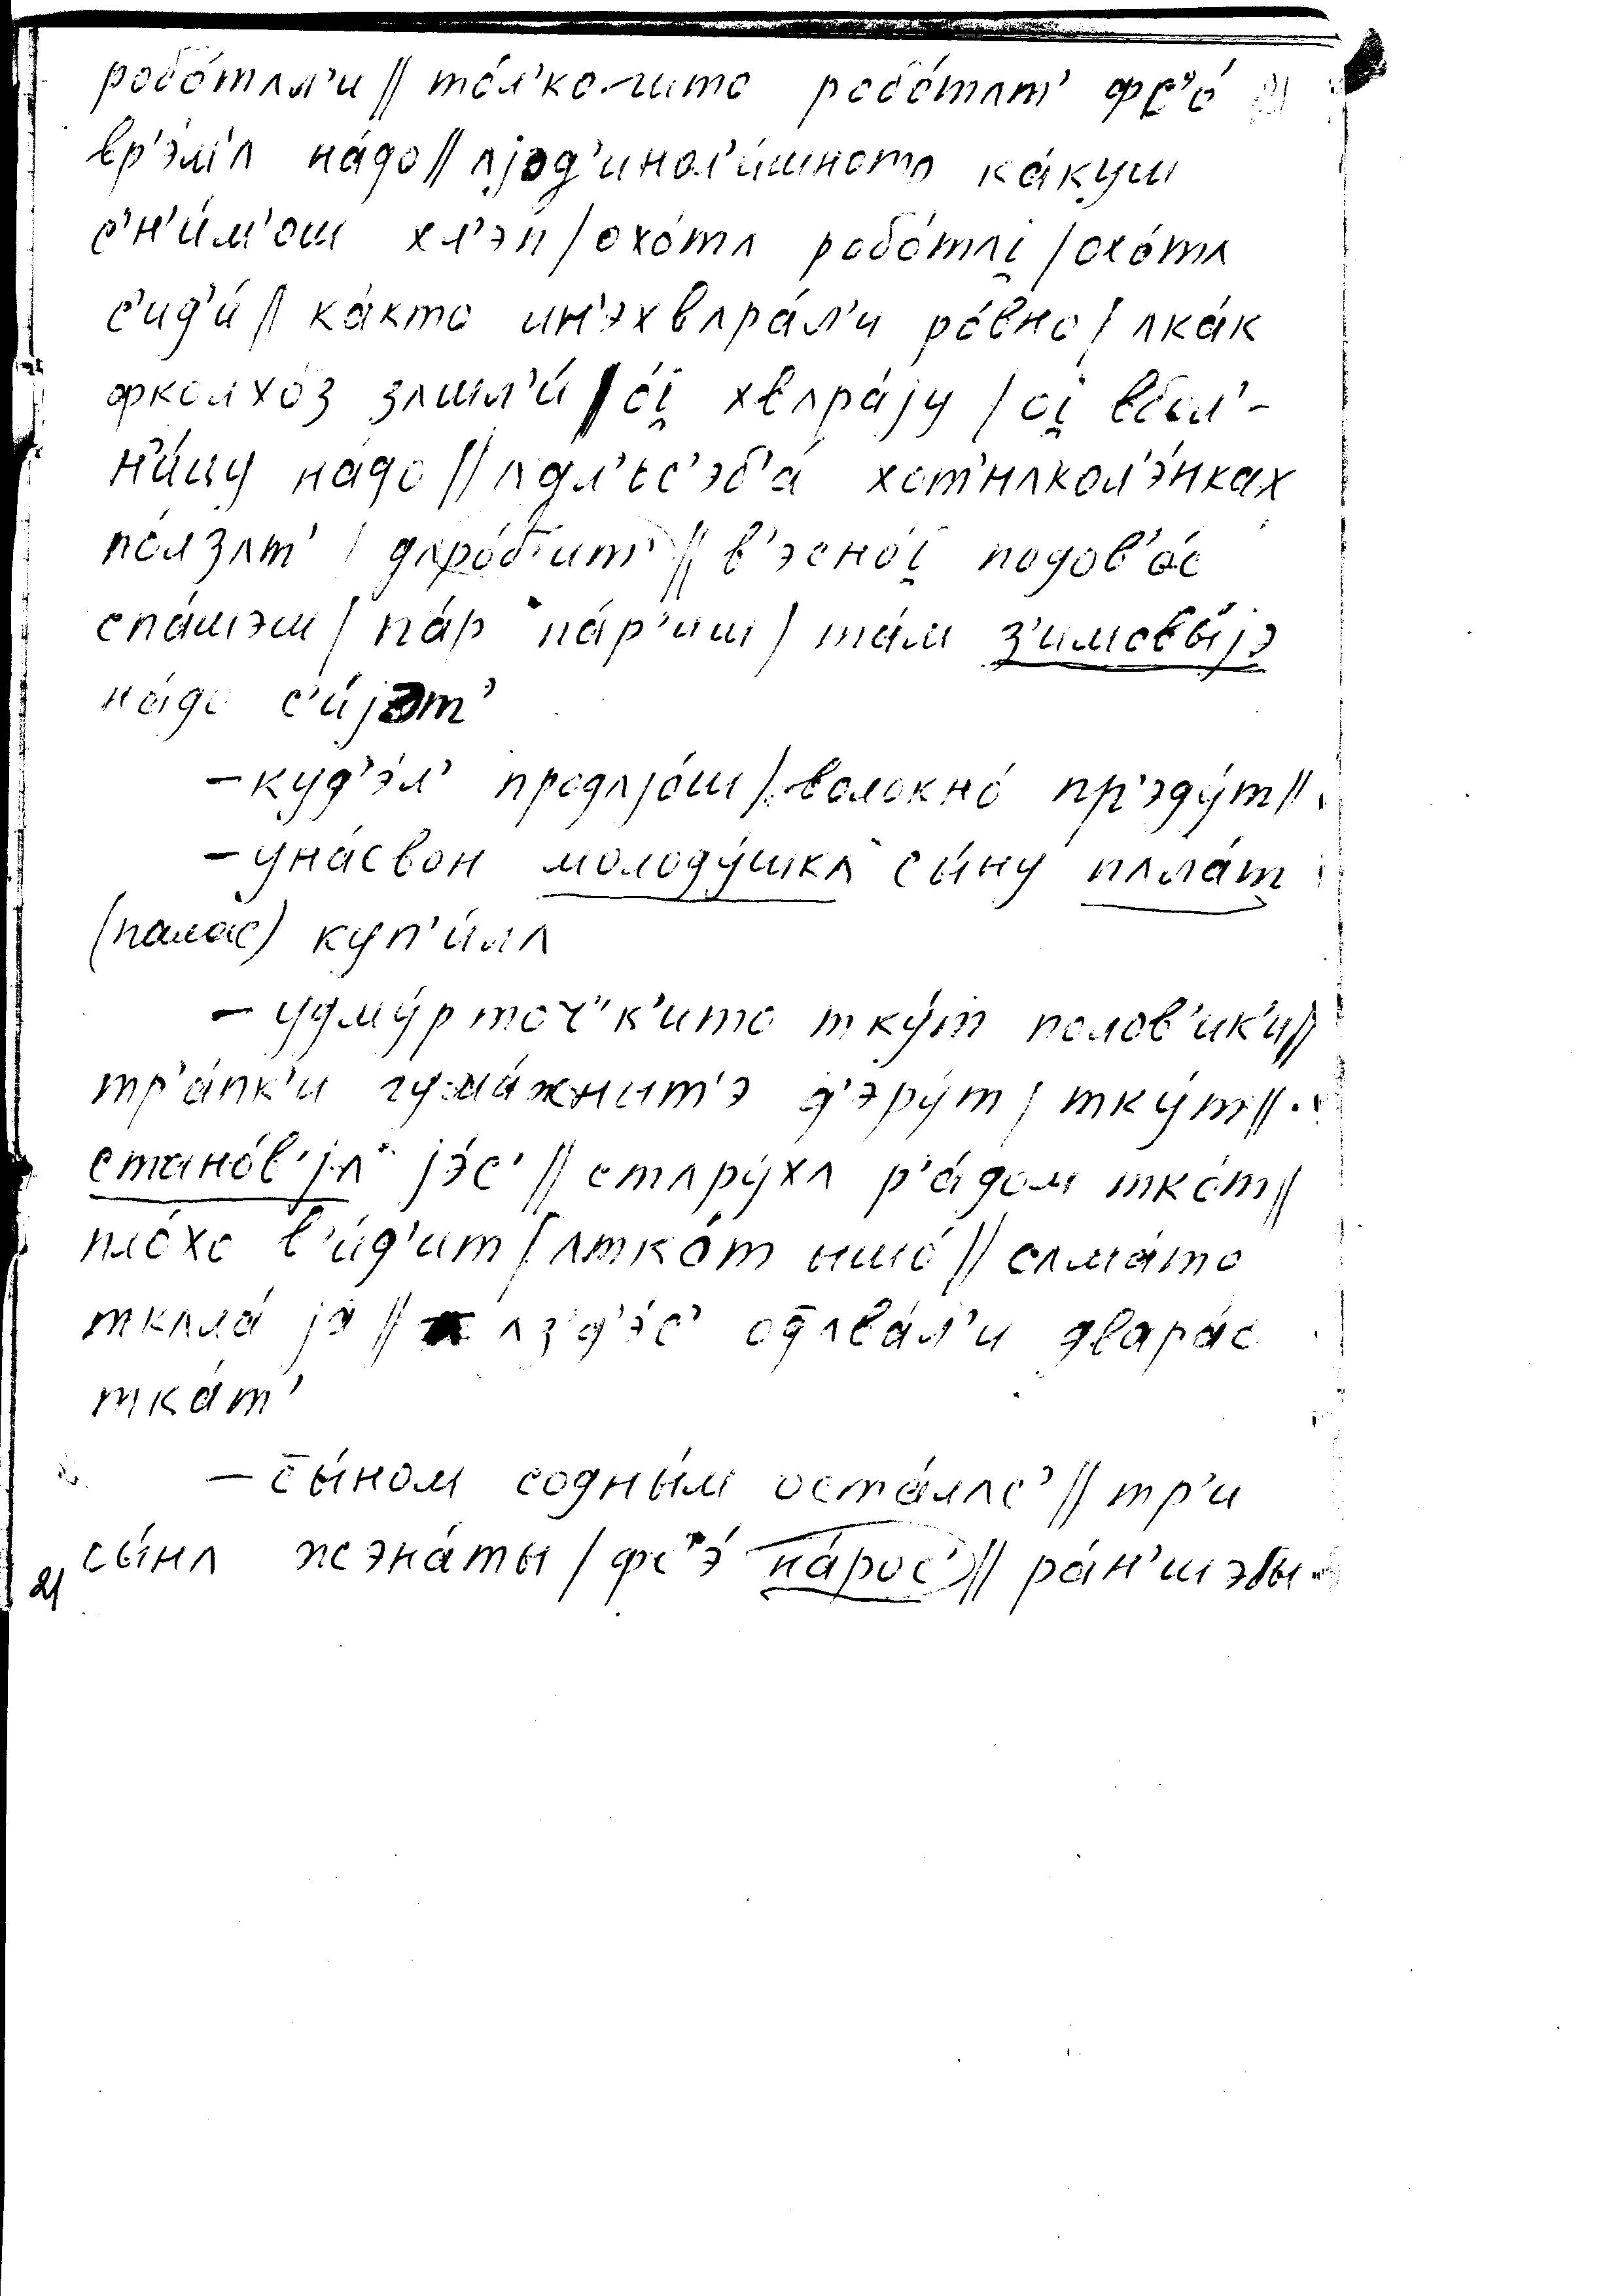 робо́тлл'и // то́л'ко-тито робо́тлт' фс'о́
вр'э́м'л на́до // лјэд'инол'и́шното ка́куш
с'н'и́м'ош хл'эп / охо́тл робо́тлі̯ / охо́тл
с'ид'и́ // ка́кто ин'эхвлра́л'и ро́вно / лка́к
фколхо́з злшл'и́ // о́і̯ хвлра́јy / оі̯ вбол'-
н'и́цу на́до // лдл'ьс'эб'а́ хот'нлкол'э́нках
по́лзлт' / дларо́б'ит' // в'эсно́і̯ подов'о́с
спа́шэш / па́р па́р'иш / та́м з'имовы́јэ
на́до с'и́јэт'
– куд'э́л' продлјо́ш / волокно́ пр'эду́т //
– уна́свон молоду́шкл сы́ну плла́т
(пала́с) куп'и́лл
– удму́рточ'к'ито тку́т полов'ик'и́ //
тр'а́пк'и гума́жныт'э д'эру́т / тку́т //
стано́в'јл јэ́с' // стлру́хл р'а́дом тко́т //
пло́хо в'и́д'ит / лтко́т ишо́ // слма́то
тклла́ јэ // лз'д'э́с' одлва́л'и двара́с
тка́т'
– сы́ном содны́м оста́ллс' // тр'и
сы́нл жэна́ты / фс'э́ па́рос' // ра́н'шэбы
21